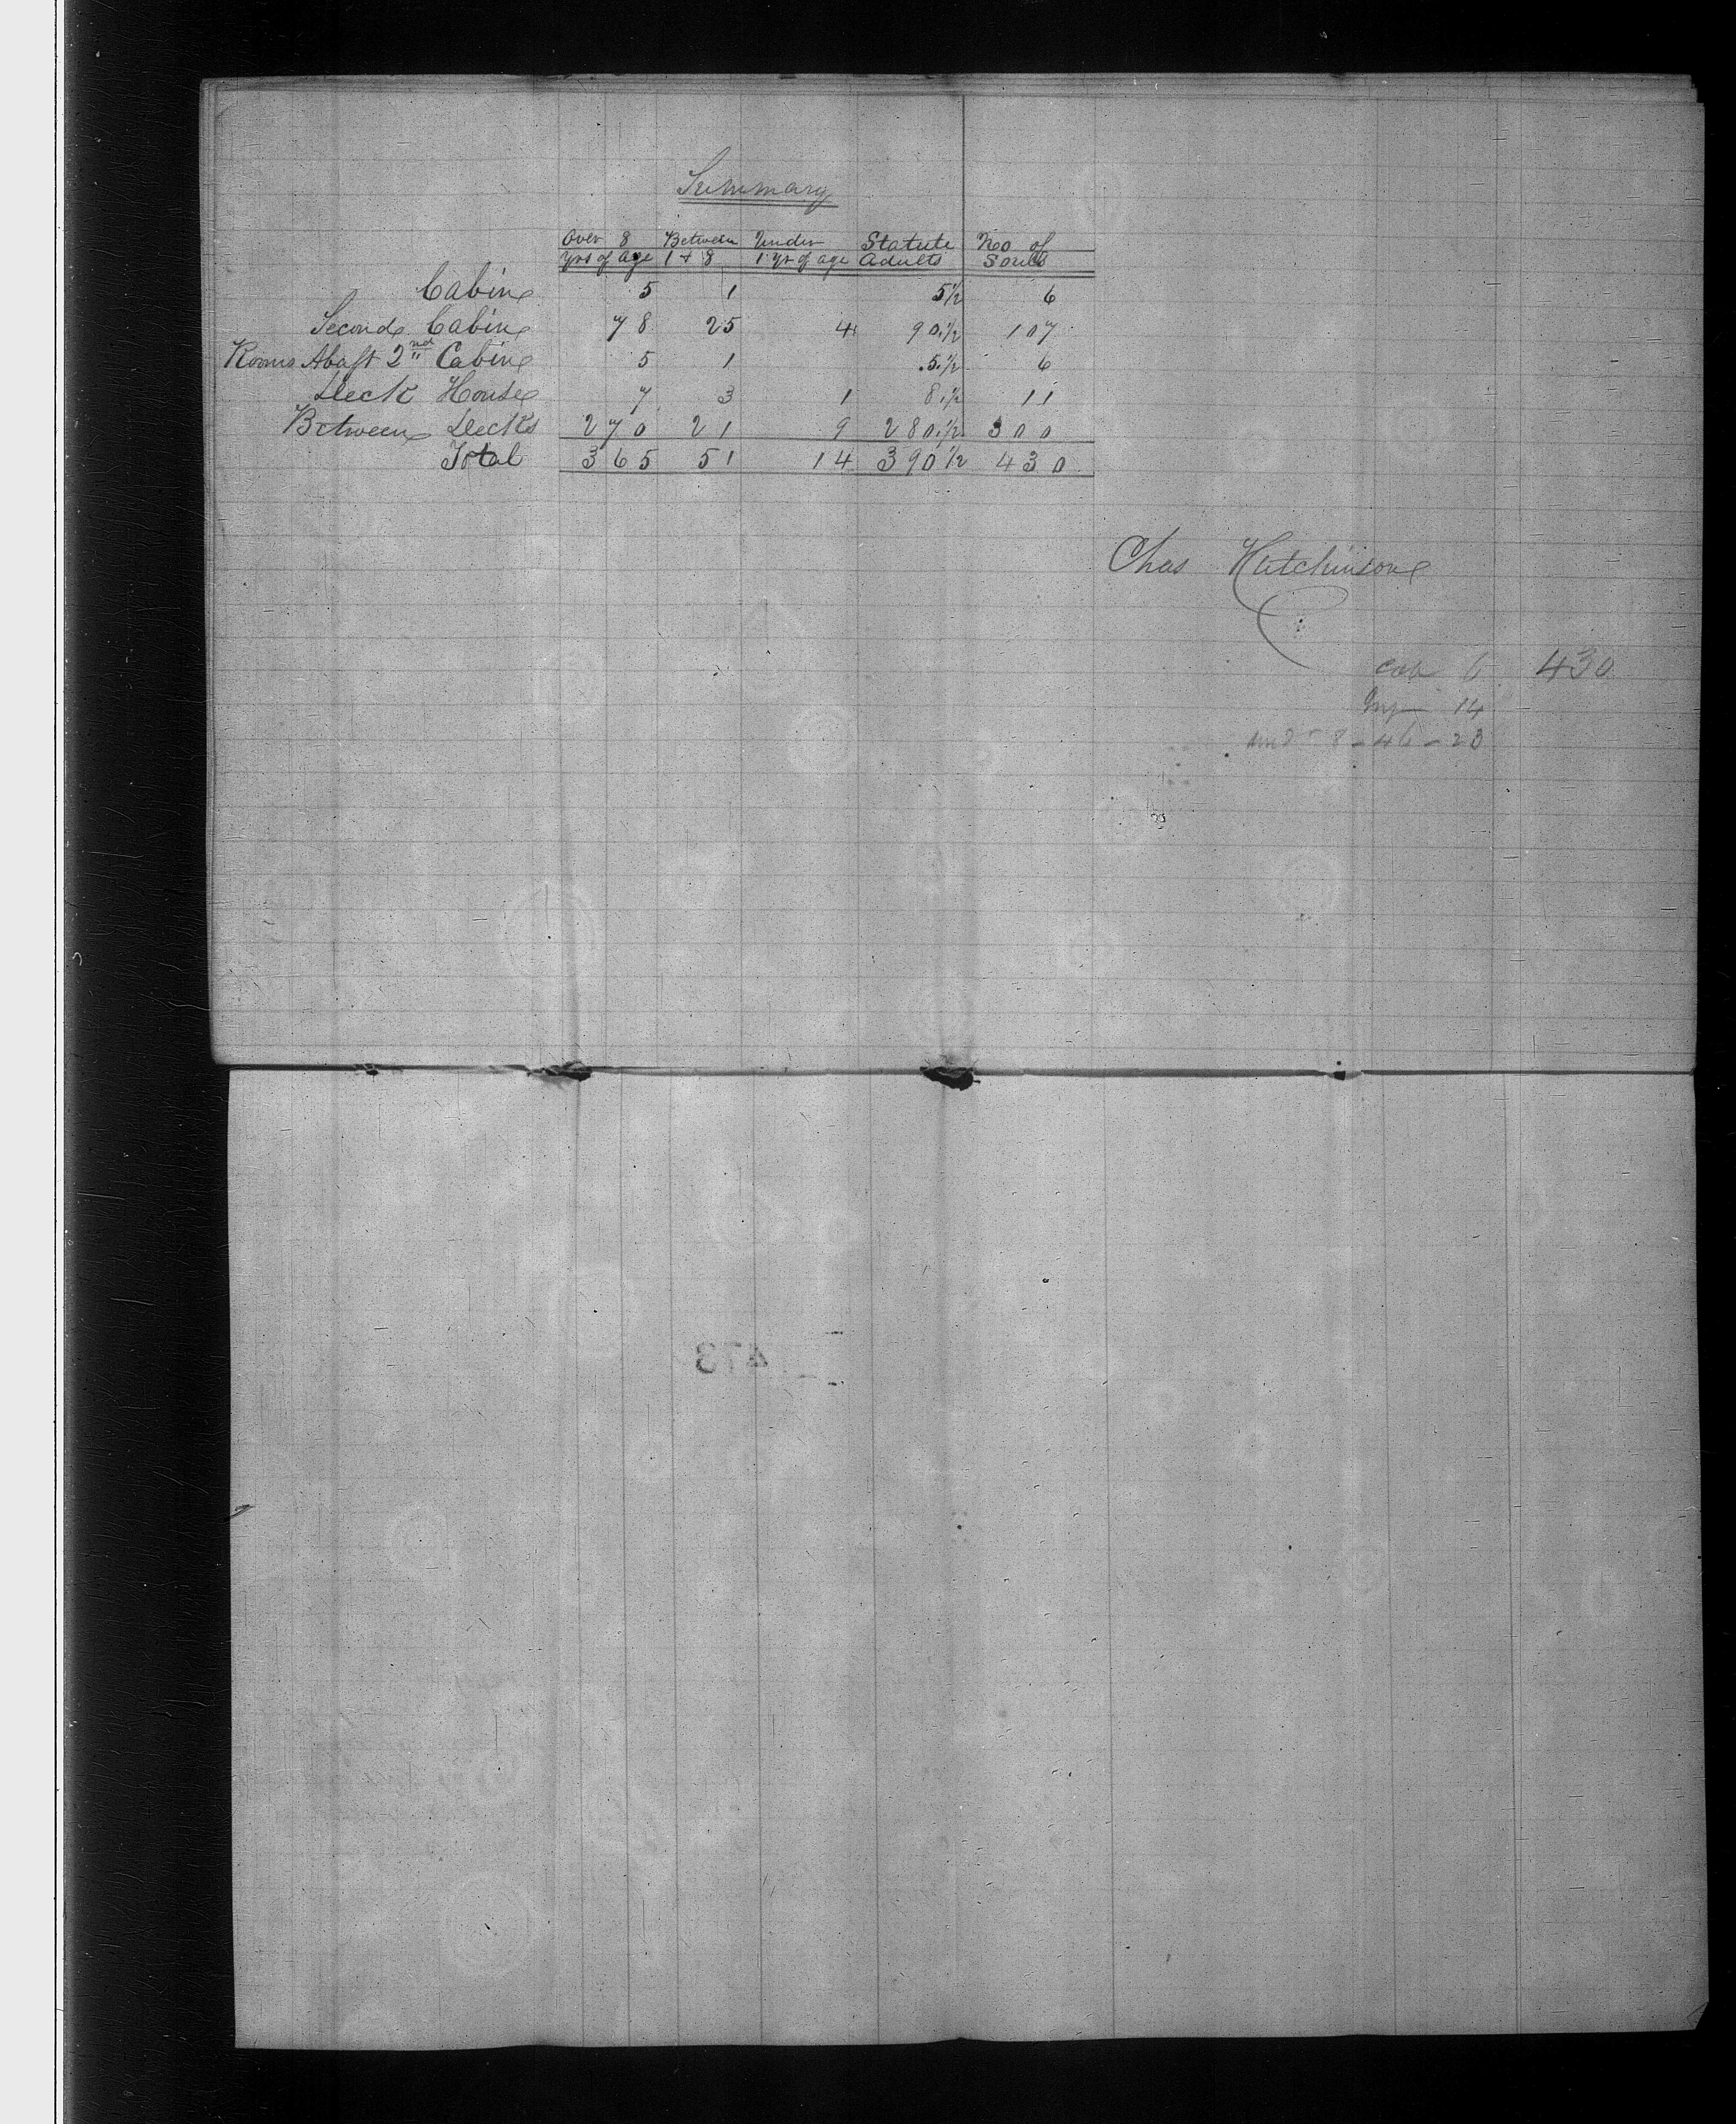 Summary
Over 8 Between Under Statute No of
yrs of age 1 + 8 1 yr of age Adults Souls
Cabin 5 1 5½ 6
Second Cabin 78 25 4 90.½ 107
Rooms Abaft 2nd Cabin 5 1 5.½ 6
Deck House 7 3 1 8.½ 11
Between Decks 270 21 9 280.½ 300
Total 365 51 14 390½ 430
Chas Hutchinson
cab 6 430
14
8 - 46 - 23
473